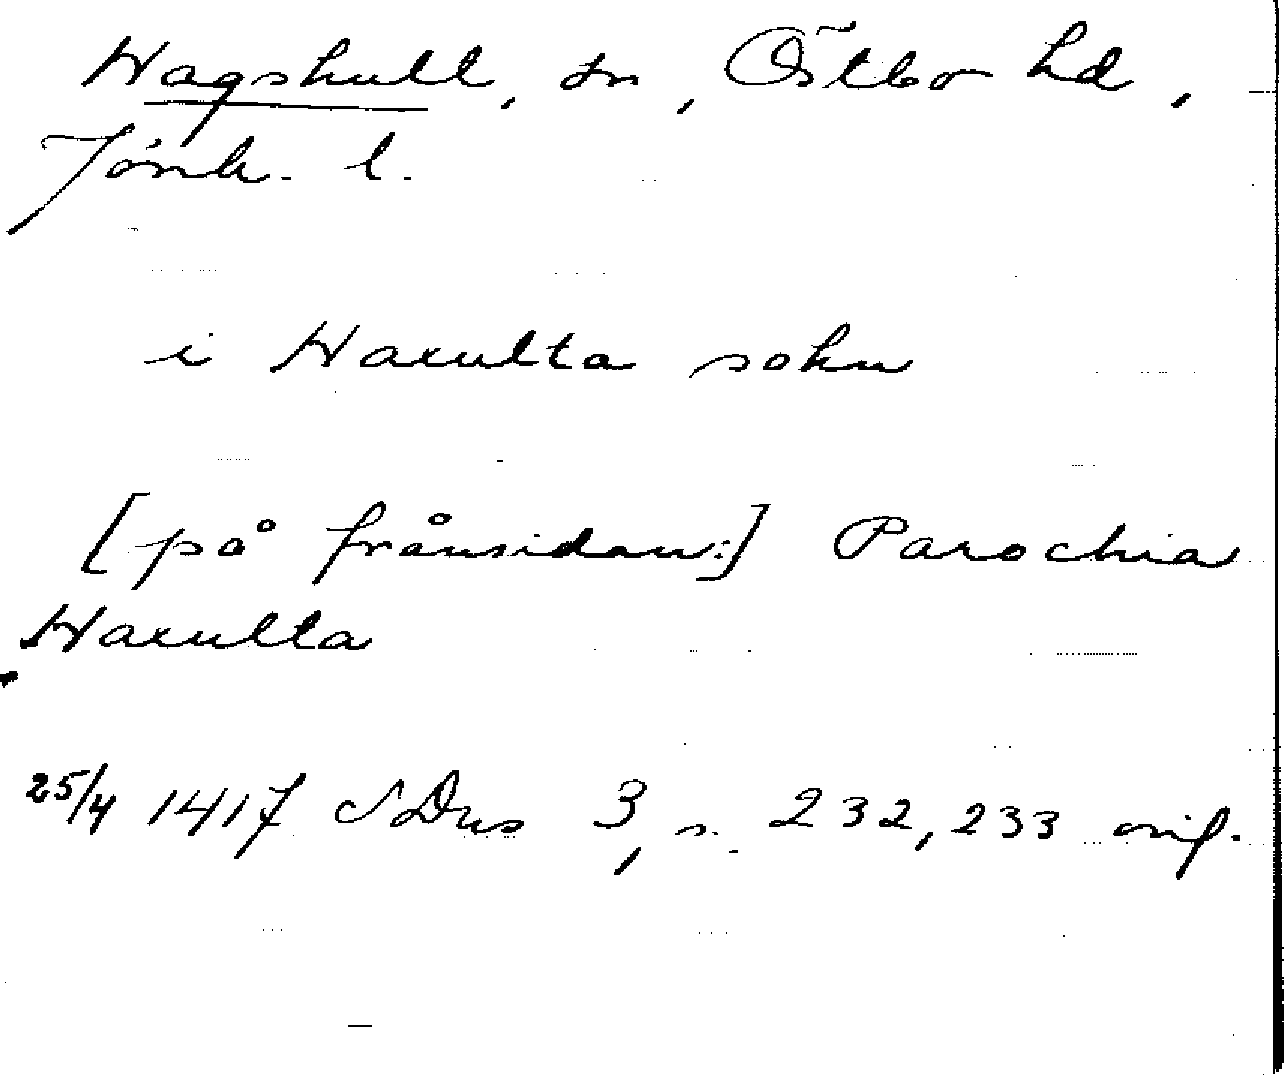 Hagshult, sn, Östbo hd,
Jönk. l.
i Haxulta sokn
[på frånsidan:] Parochia
Haxulta
25/4 1417 SDns 3, s. 232, 233 orig.